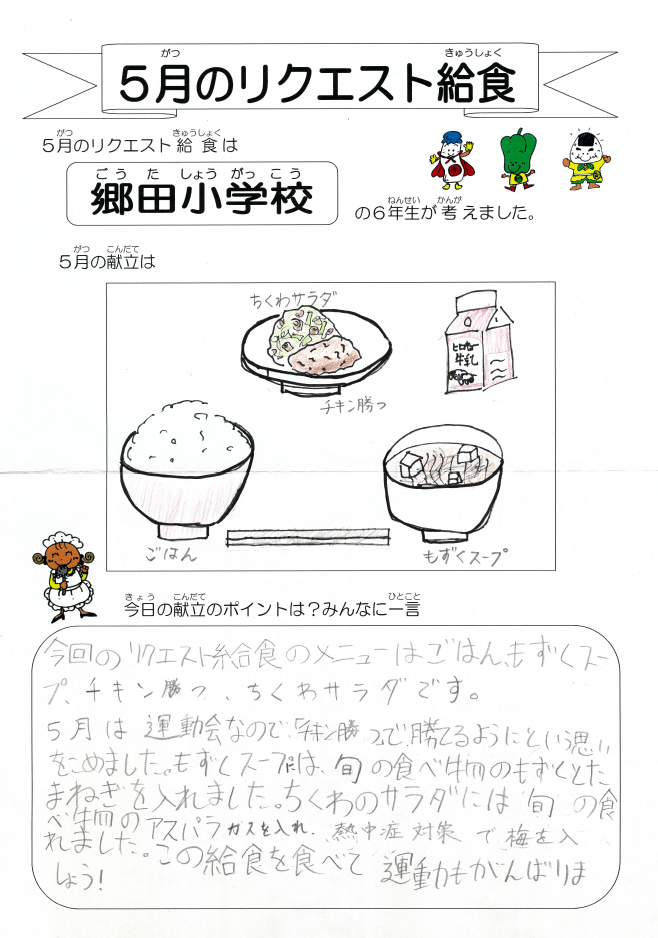 5月のリクエスト給食
5月のリクエスト給食は
郷田小学校
の6年生が考えました。
5月の献立は
ちくわサラダ
チキン勝つ
牛乳
ごはん
もずくスープ
今日の献立のポイントは?みんなに一言
今回のリクエスト給食のメニューはごはん、もずくスー
プ、チキン勝つ、ちくわサラダです。
5月は運動会なので、「チキン勝つ」で、勝てるようにという思い
をこめました。もずくスープには、旬の食べ物のもずくとた
まねぎを入れました。ちくわのサラダには旬の食
べ物のアスパラガスを入れ、熱中症対策で梅を入
れました。この給食を食べて運動もがんばりま
しょう!